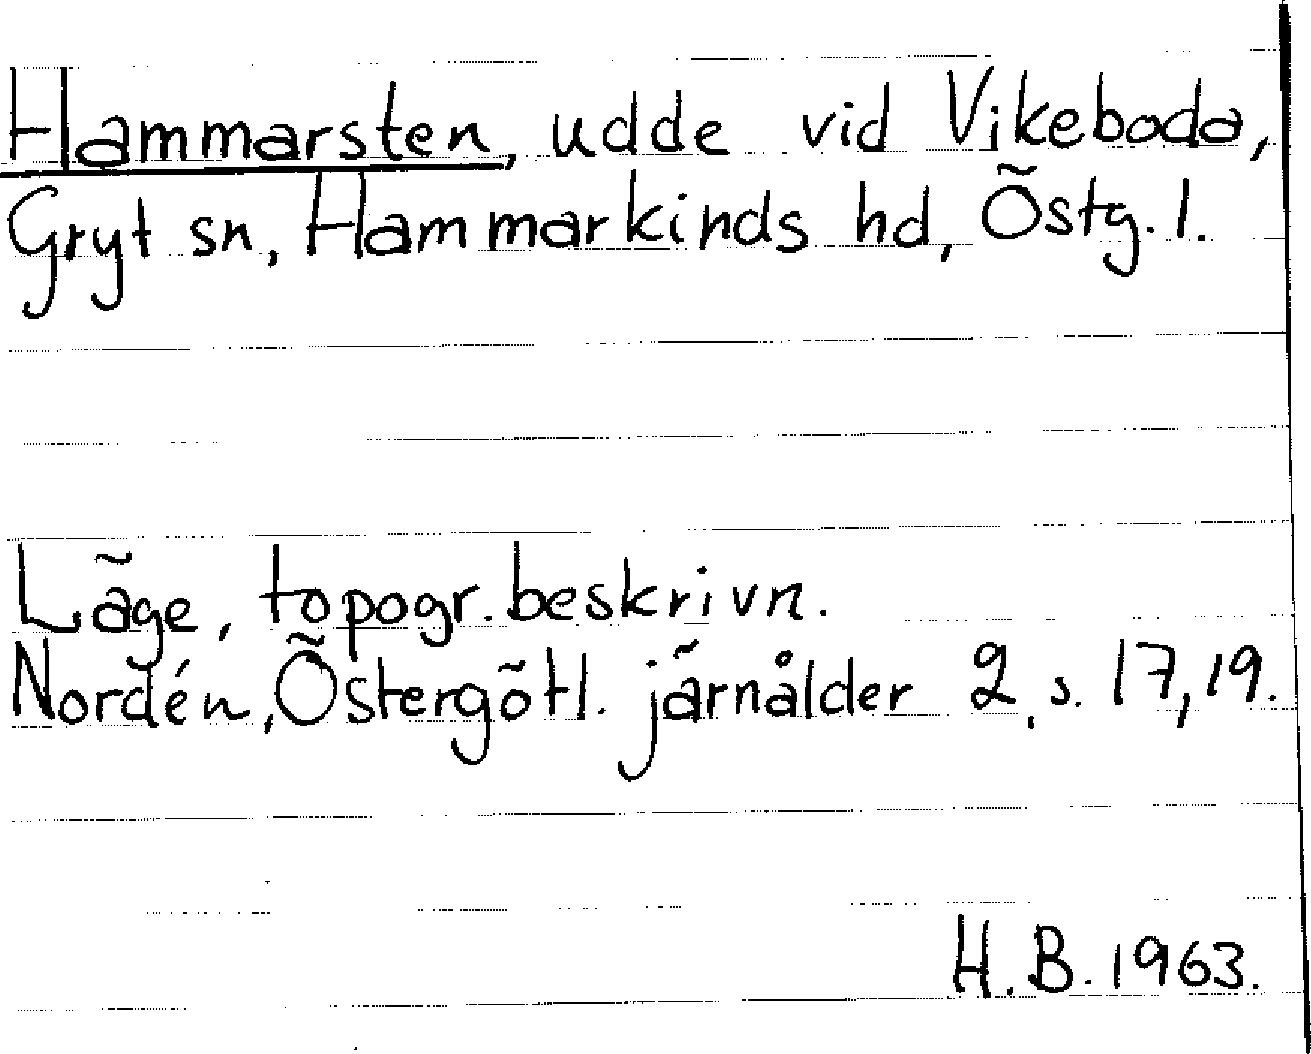 Hammarsten, udde vid Vikeboda,
Gryt sn, Hammarkinds hd, Östg. l.
Läge, topogr. beskrivn.
Nordén, Östergötl. järnålder 2, s. 17, 19.
H. B. 1963.